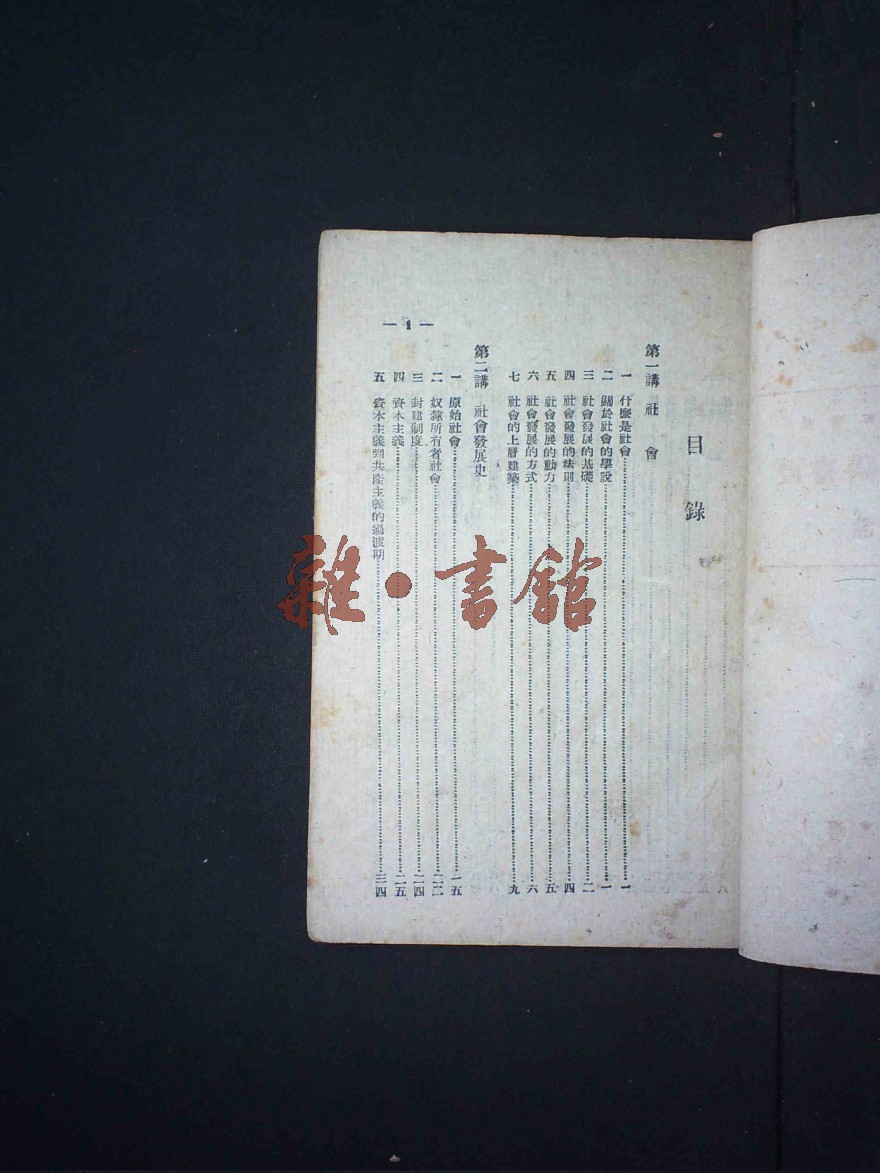 目錄
第一講 社會
一 什麼是社會……一
二 關於社會的學說……一
三 社會發展的基礎……二
四 社會發展的法則……四
五 社會發展的動力……五
六 社會發展的方式……六
七 社會的上層建築……九
第二講 社會發展史
一 原始社會……一五
二 奴隸所有者社會……二二
三 封建制度……二四
四 資本主義……二五
五 資本主義到共產主義的過渡期……三四
— 1 —
雜·書館